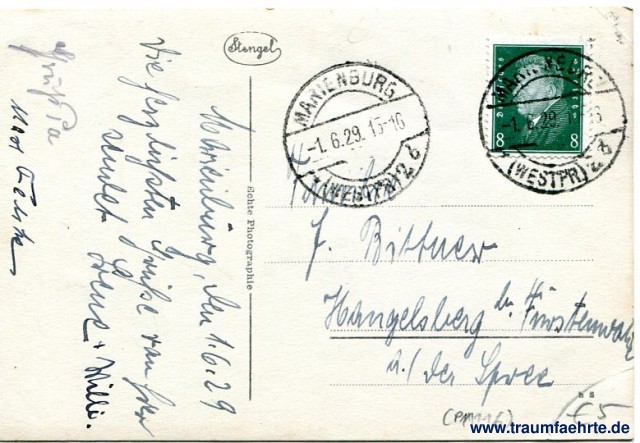 Stengel
Marienburg, den 1.6.29
Die herzlichsten Grüße von hier
sendet Irene + Willi.
Echte Photographie
MARIENBURG
-1.6.29. 15-16
(WESTPR) 2 b
8 8
MARIENBURG
-1.6.29.
(WESTPR)
J. Bittner
Hangelsberg b. Fürstenwalde
a./ der Spree
www.traumfaehrte.de